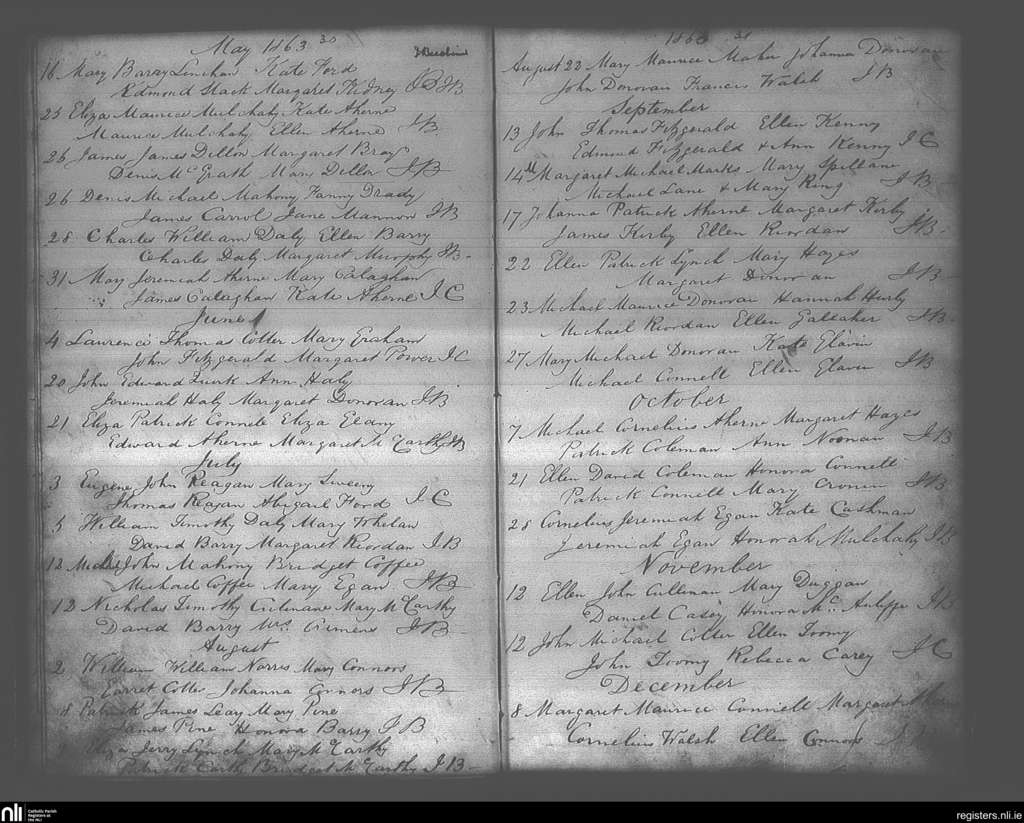 May 1863 30
16 Mary Barry Linehan Kate Ford
Edmond Stack Margaret JB
25 Eliza Maurice Mulchahy Kate Aherne
Maurice Mulchahy Ellen Aherne JB
26 James James Dillon Margaret Bray
Denis McGrath Mary Dillon JB
26 Denis Michael Mahony Fanny Drady
James Carrol Jane Mannon JB
28 Charles William Daly Ellen Barry
Charles Daly Margaret Murphy JB
31 Mary Jeremiah Aherne Mary Calaghan
James Calaghan Kate Aherne J C
June
4 Laurence Thomas Cotter Mary Graham
John Fitzgerald Margaret Power J C
20 John Edward Quirk Ann Haly
Jeremiah Haly Margaret Donovan JB
21 Eliza Patrick Connele Eliza Eleany
Edward Aherne Margaret Mc Carthy JB
July
3 Eugene John Reagan Mary Sweeny
Thomas Reagan Abigail Ford J C
5 William Timothy Daly Mary Whelan
David Barry Margaret Riordan J B
12 John Mahony Bridget Coffee
Michael Coffee Mary Egan JB
12 Nicholas Timothy Culinane Mary McCarthy
David Barry Mrs. JB
August
2 William William Norris Mary Connors
Garret Cotter Johanna Connors JB
8 Patrick James Leary Mary Pine
James Pine Honora Barry J B
Eliza Jerry Lynch Mary McCarthy
Patrick Carthy Bridget McCarthy J B
1863 30
August 22 Mary Maurice Maher Johanna Donovan
John Donovan Francis Walsh JB
September
13 John Thomas Fitzgerald Ellen Kenny
Edmund Fitzgerald & Ann Kenny J C
14th Margaret Michael Marks Mary Spillane
Michael Lane & Mary Ring JB
17 Johanna Patrick Aherne Margaret Kirby
James Kirby Ellen Riordan JB
22 Ellen Patrick Lynch Mary Hayes
Margaret Donovan JB
23 Michael Maurice Donovan Hannah Hurly
Michael Riordan Ellen Gallaher JB
27 Mary Michael Donovan Kate Flavin
Michael Connell Ellen Flavin JB
October
7 Michael Cornelius Aherne Margaret Hayes
Patrick Coleman Ann Noonan JB
21 Ellen David Coleman Honora Connell
Patrick Connell Mary Cronin JB
25 Cornelius Jeremiah Egan Kate Cashman
Jeremiah Egan Honorah Mulchahy JB
November
12 Ellen John Cullinan Mary Duggan
Daniel Casey Honora Mc. Auliffe JB
12 John Michael Cotter Ellen Toomy
John Toomy Rebecca Carey J C
December
8 Margaret Maurice Connell Margaret
Cornelius Walsh Ellen Connors
nli Catholic Parish Registers at the NLI
registers.nli.ie